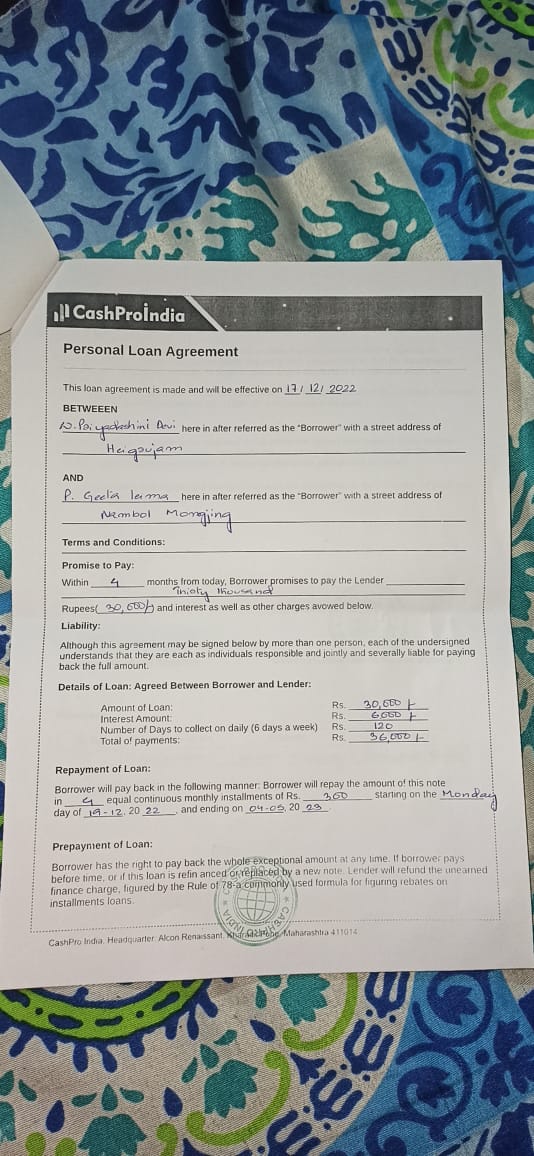 CashProIndia
Personal Loan Agreement
This loan agreement is made and will be effective on 17/ 12/ 2022
BETWEEEN
here in after referred as the "Borrower" with a street address of
Heigoujam
AND
P. Geeta leima here in after referred as the "Borrower" with a street address of
Nambol Mongjing
Terms and Conditions:
Promise to Pay:
Within 4 months from today, Borrower promises to pay the Lender
thousand
Rupees( 30,000/-) and interest as well as other charges avowed below.
Liability:
Although this agreement may be signed below by more than one person, each of the undersigned
understands that they are each as individuals responsible and jointly and severally liable for paying
back the full amount.
Details of Loan: Agreed Between Borrower and Lender:
Amount of Loan: Rs. 30,000 /-
Interest Amount: Rs. 6000 /-
Number of Days to collect on daily (6 days a week) Rs. 120
Total of payments: Rs. 36,000 /-
Repayment of Loan:
Borrower will pay back in the following manner: Borrower will repay the amount of this note
in 4 equal continuous monthly installments of Rs. 300 starting on the Monday
day of 19-12, 20 22, and ending on 04-05, 20 23.
Prepayment of Loan:
Borrower has the right to pay back the whole exceptional amount at any time. If borrower pays
before time, or if this loan is refin anced or replaced by a new note. Lender will refund the unearned
finance charge, figured by the Rule of 78-a commonly used formula for figuring rebates on
installments loans.
CashPro India. Headquarter. Alcon Renaissant. Maharashtra 411014